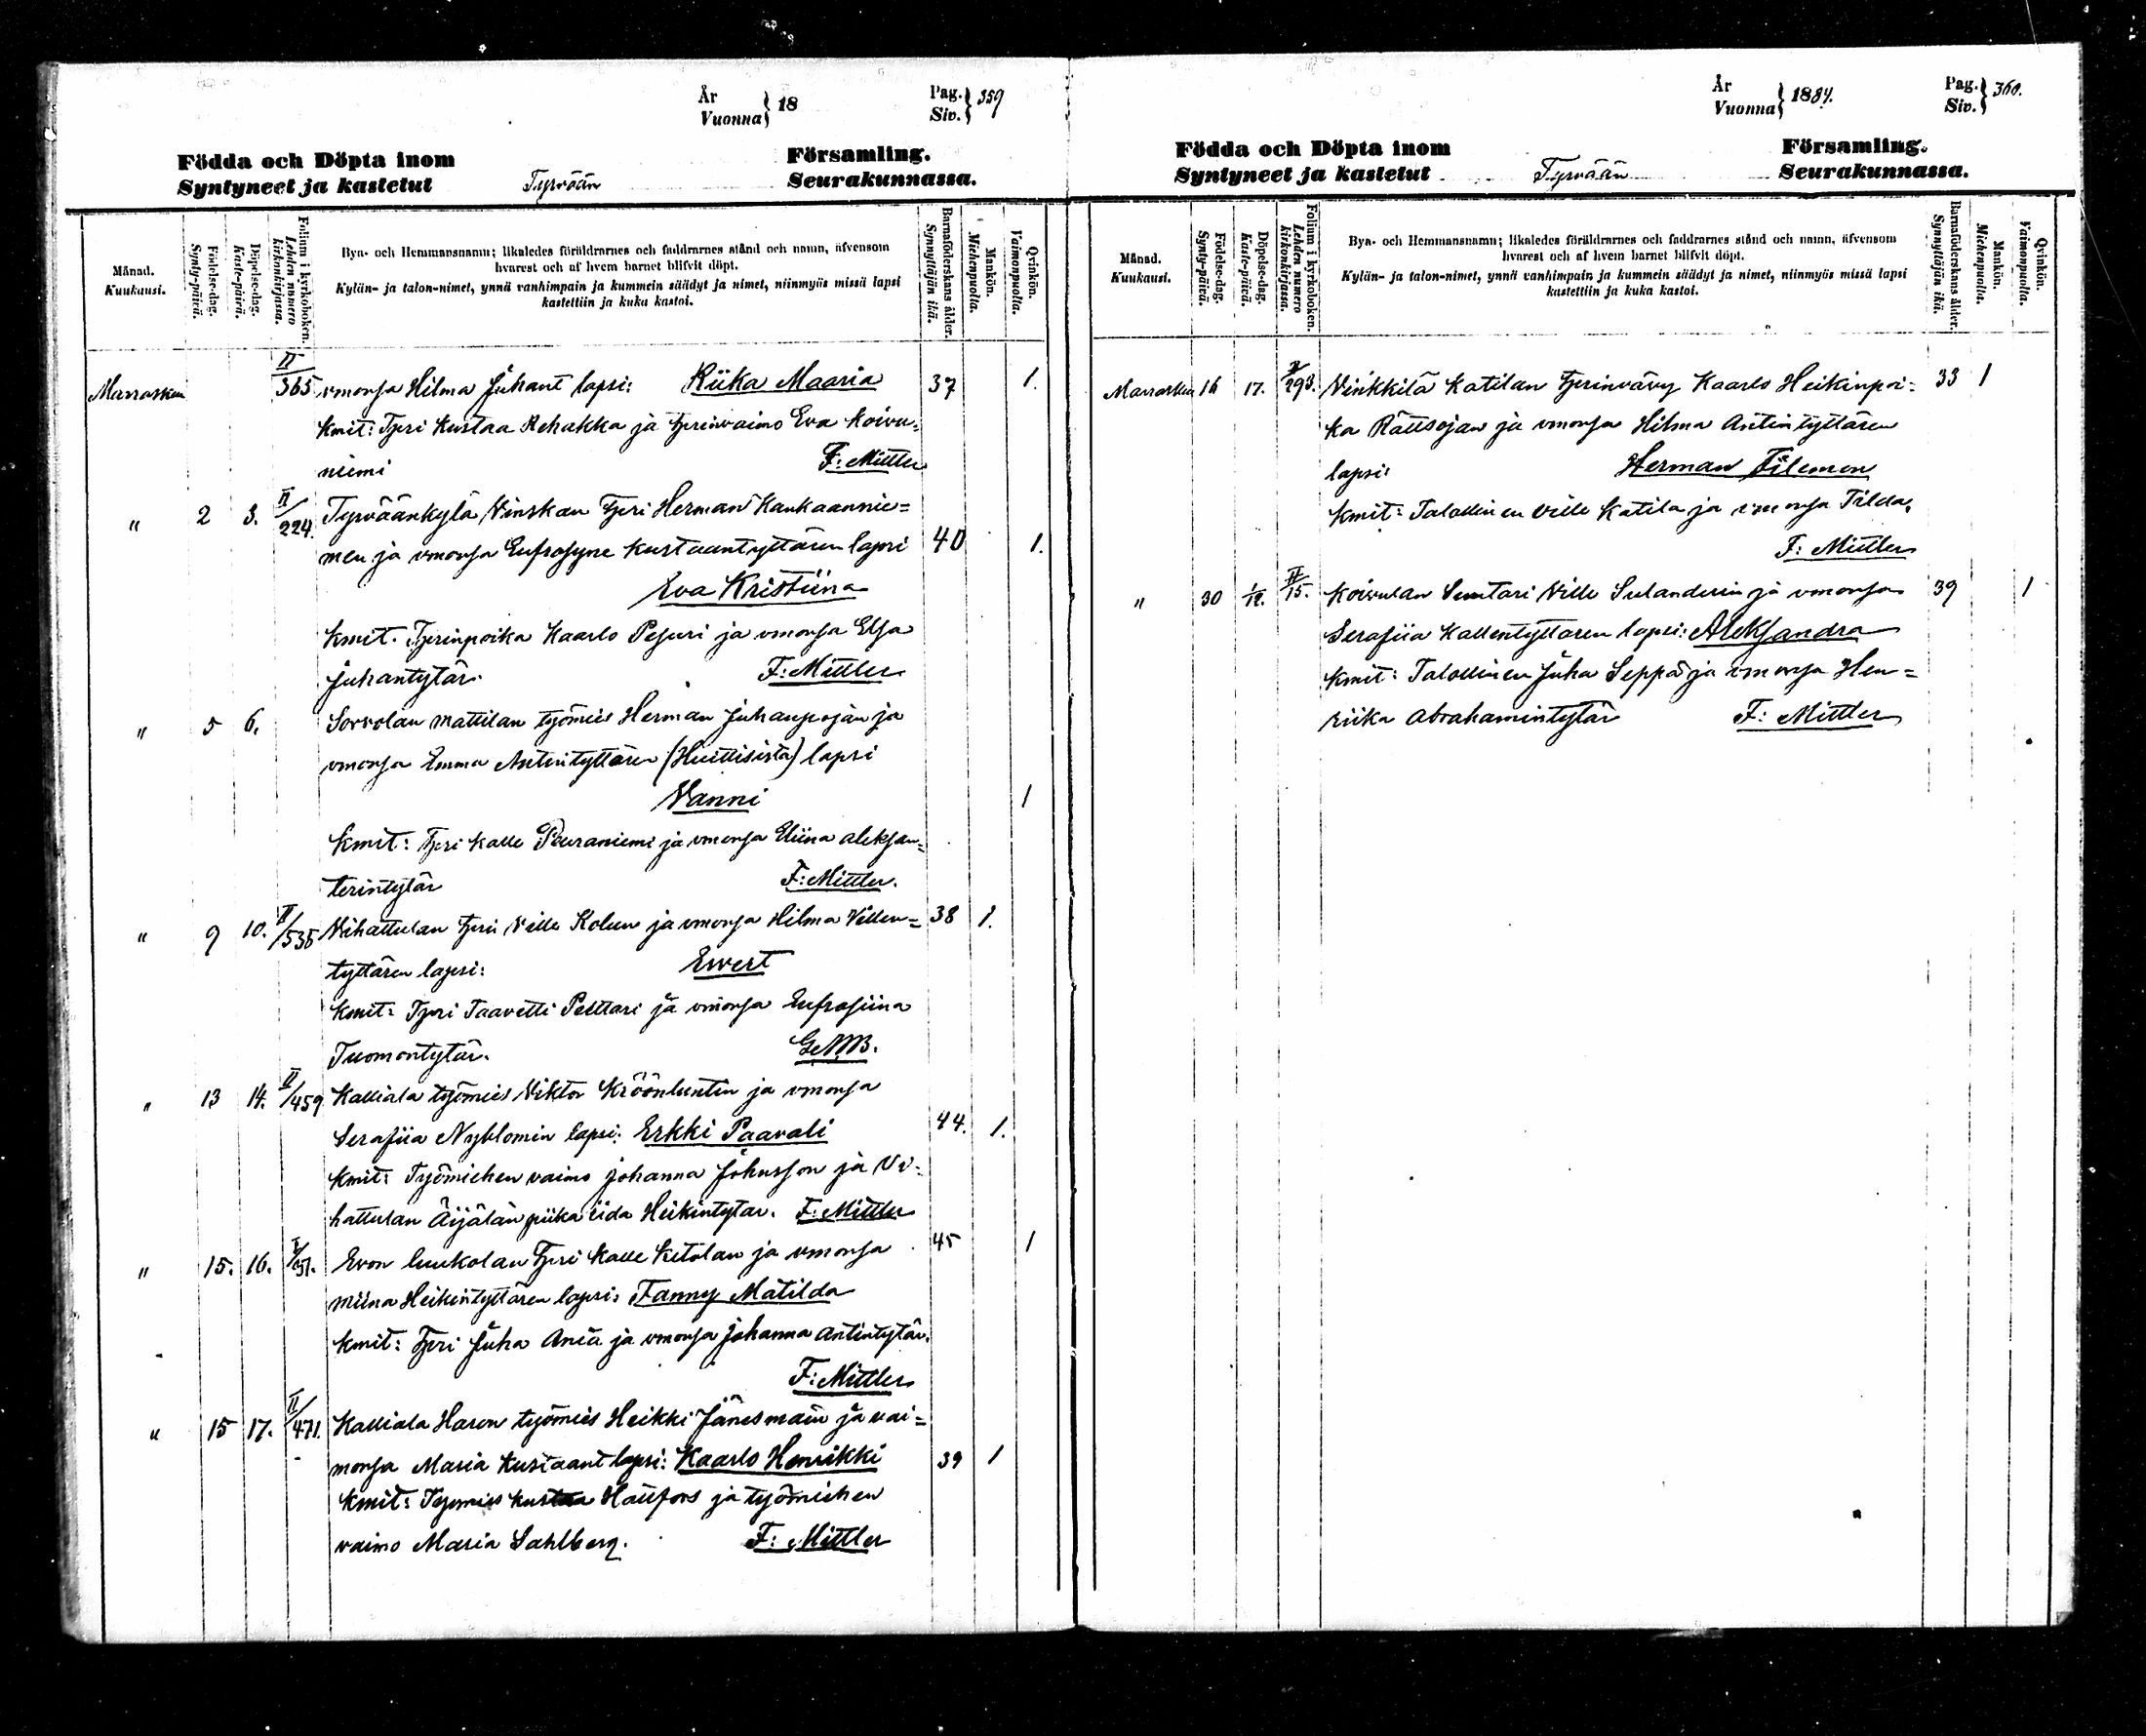 År
Vuonna } 18
Pag.
Siv. } 359
Födda och Döpta inom Församling.
Syntyneet ja kastetut Tyrvään Seurakunnassa.
Månad.
Kuukausi.
Födelse-dag.
Synty-päivä.
Döpelse-dag.
Kaste-päivä.
Folium i kyrkoboken.
Lehden numero
kirkonkirjassa.
Bya- och Hemmansnamn; likaledes föräldrarnes och faddrarnes stånd och namn, äfvensom
hvarest och af hvem barnet blifvit döpt.
Kylän- ja talon-nimet, ynnä vanhimpain ja kummein säädyt ja nimet, niinmyös missä lapsi
kastettiin ja kuka kastoi.
Barnaföderskans ålder.
Synnyttäjän ikä.
Mankön.
Miehenpuolia.
Qvinkön.
Vaimonpuolia.
Marraskuu II/365 vmonsa Hilma Juhant lapsi: Riika Maaria 37 1.
Kmit: Tpri Kustaa Rehakka ja tprinvaimo Eva Koivu=
niemi F: Mittler
" 2 3. II/224. Tyrväänkylä Vinskan Tpri Herman Kankaannie=
men ja vmonsa Eufrosyne Kustaantyttären lapsi 40 1.
Eva Kristiina
Kmit. Tprinpoika Kaarlo Pesuri ja vmonsa Elsa
Juhantytär. F: Mittler
" 5 6. Sorvolan Mattilan työmies Herman Juhanpojan ja
vmonsa Emma Antintyttären (Huittisista) lapsi
Vanni 1
Kmit: Tpri Kalle Peuraniemi ja vmonsa Eliina Aleksan=
terintytär F: Mittler.
" 9 10. II/535 Vihattulan tpri Ville Kolun ja vmonsa Hilma Villen= 38 1.
tyttären lapsi: Evert
Kmit: Tpri Taavetti Pelttari ja vmonsa Eufrosiina
Tuomontytär.
" 13 14. II/459 Kalliala työmies Viktor Kröönluntin ja vmonsa
Serafiia Nyblomin lapsi: Erkki Paavali 44. 1.
Kmit: Työmiehen vaimo Johanna Johnsson ja Vi=
hattulan Äijälän piika Iida Heikintytär. F: Mittler
" 15. 16. Evon Luukolan Tpri Kalle Ketolan ja vmonsa 45 1
Miina Heikintyttären lapsi: Fanny Matilda
Kmit: Tpri Juha Aniä ja vmonsa Johanna Antintytär.
F: Mittler
" 15 17. II/471. Kalliala Haron työmies Heikki Jänesmäin ja vai=
monsa Maria Kustaant lapsi: Kaarlo Henrikki 39 1
Kmit: Työmies Kustaa Hällfors ja työmiehen
vaimo Maria Sahlberg. F: Mittler
År
Vuonna } 1884.
Pag.
Siv. } 360.
Födda och Döpta inom Församling.
Syntyneet ja kastetut Tyrvään Seurakunnassa.
Månad.
Kuukausi.
Födelse-dag.
Synty-päivä.
Döpelse-dag.
Kaste-päivä.
Folium i kyrkoboken.
Lehden numero
kirkonkirjassa.
Bya- och Hemmansnamn; likaledes föräldrarnes och faddrarnes stånd och namn, äfvensom
hvarest och af hvem barnet blifvit döpt.
Kylän- ja talon-nimet, ynnä vanhimpain ja kummein säädyt ja nimet, niinmyös missä lapsi
kastettiin ja kuka kastoi.
Barnaföderskans ålder.
Synnyttäjän ikä.
Mankön.
Miehenpuolia.
Qvinkön.
Vaimonpuolia.
Marraskuu 16 17. 293. Vinkkilä Katilan tprinvävy Kaarlo Heikinpoi= 33 1
ka Rättsojan ja vmonsa Hilma Antintyttären
lapsi: Herman Filemon
Kmit: Talollinen Ville Katila ja vmonsa Tilda.
F: Mittler
" 30 1/12. II/15. Koivulan Suutari Ville Sulanderin ja vmonsa 39 1
Serafiia Kallentyttären lapsi: Aleksandra
Kmit: Talollinen Juha Seppä ja vmonsa Hen=
riika Abrahamintytär F: Mittler